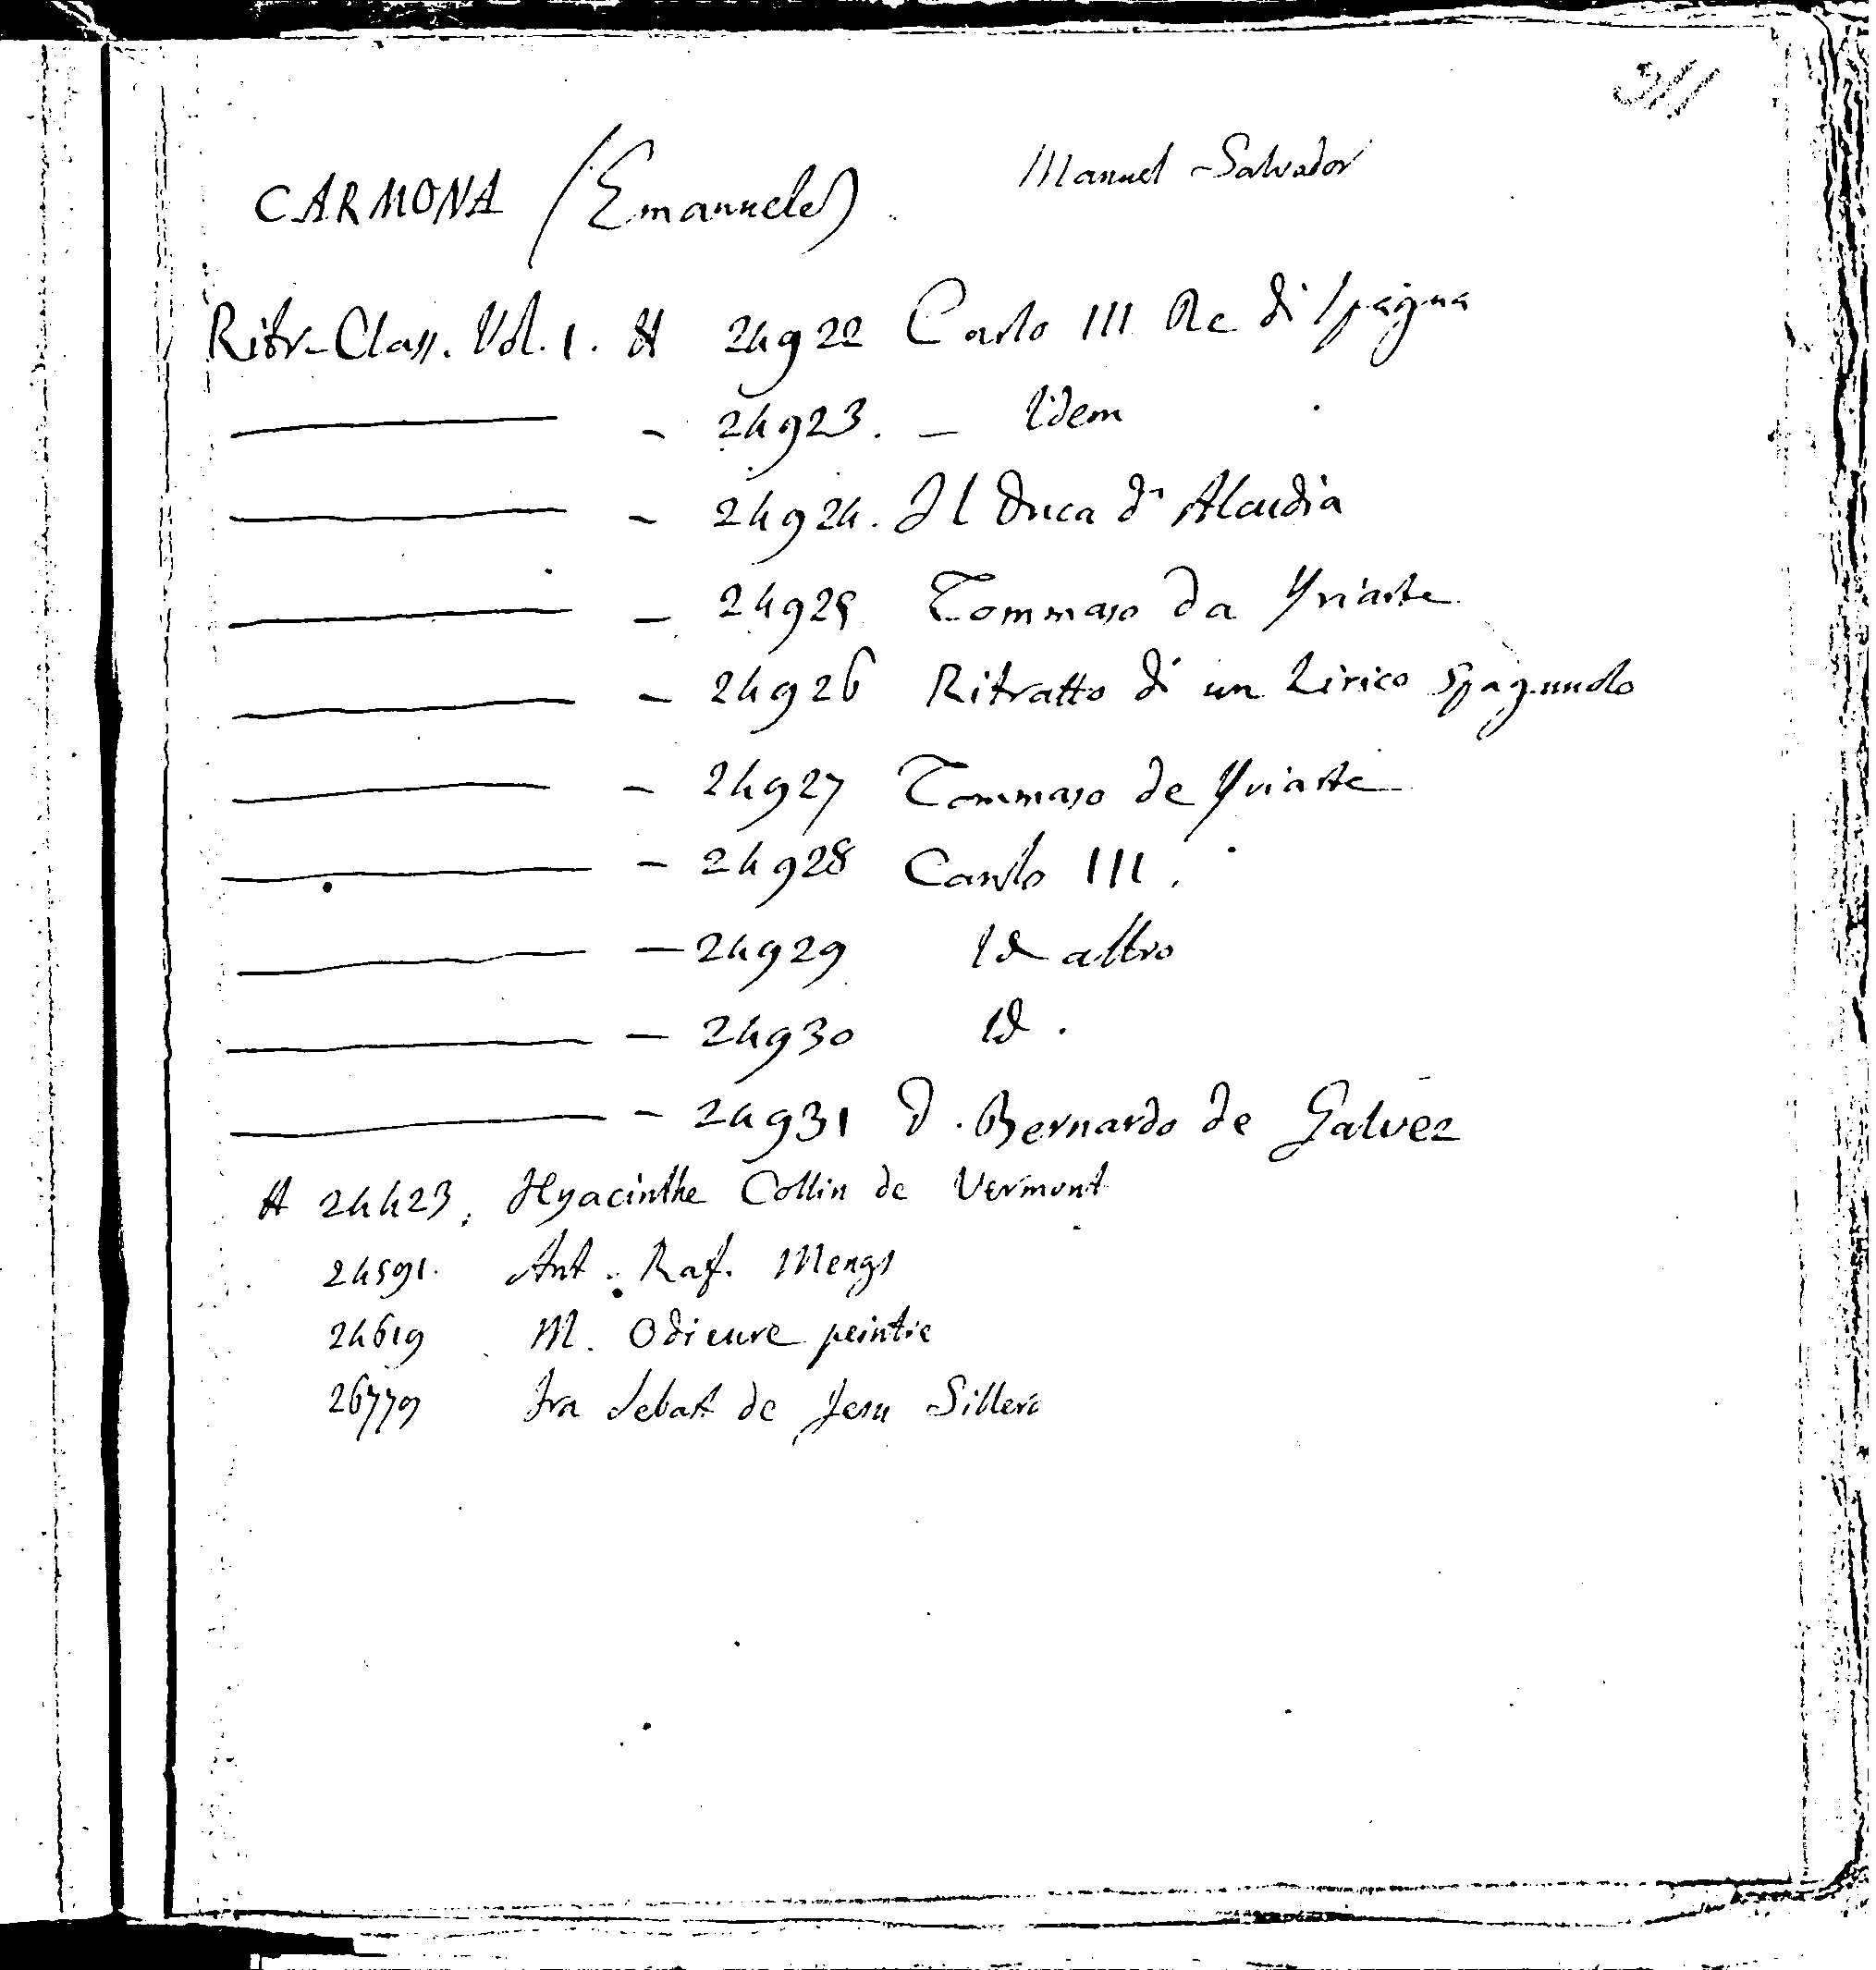 311
CARMONA (Emanuele) Manuel Salvador
Ritr. Class. Vol. 1. H 24922 Carlo III Re di Spagna
- 24923. - Idem
- 24924. Il Duca d' Alcudia
- 24925 Tommaso da Yriarte
- 24926 Ritratto di un Lirico Spagnuolo
- 24927 Tommaso de Yriarte
- 24928 Carlo III.
- 24929 Id altro
- 24930 Id.
- 24931 D. Bernardo de Galvez
H 24423. Hyacinthe Collin de Vermont
24591. Ant. Raf. Mengs
24619 M. Odieure peintre
26779 Fra Sebast de Jesu Sillero